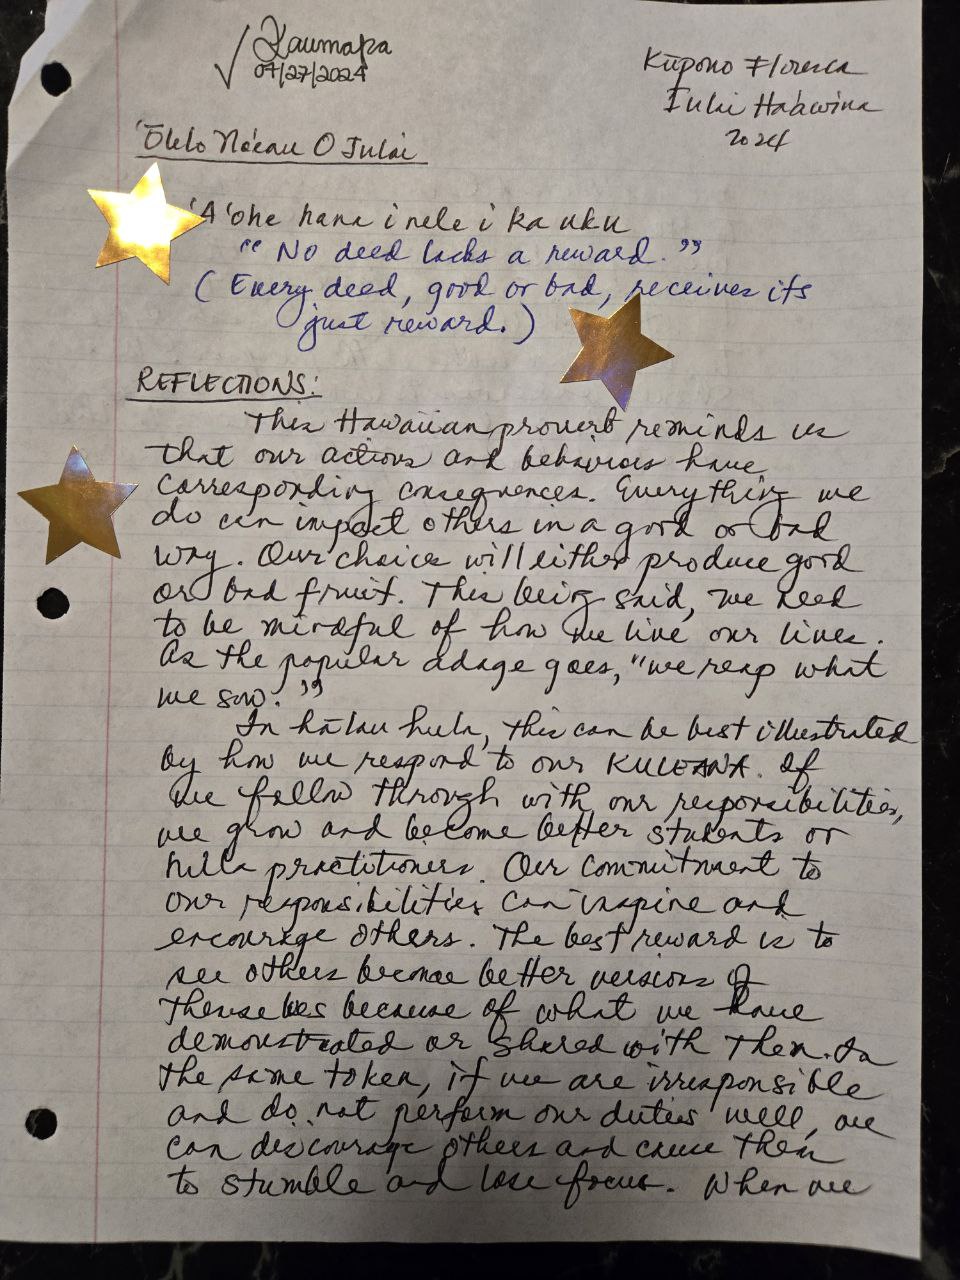 ✓ Kaumapa
07/27/2024
Kūpono Floresca
Iulai Haʻawina
2024
ʻŌlelo Noʻeau O Iulai
ʻAʻohe hana i nele i ka uku
“No deed lacks a reward.”
(Every deed, good or bad, receives its
just reward.)
REFLECTIONS:
This Hawaiian proverb reminds us
that our actions and behaviors have
corresponding consequences. Everything we
do can impact others in a good or bad
way. Our choices will either produce good
or bad fruit. This being said, we need
to be mindful of how we live our lives.
As the popular adage goes, “we reap what
we sow.”
In hālau hula, this can be best illustrated
by how we respond to our KULEANA. If
we follow through with our responsibilities,
we grow and become better students or
hula practitioners. Our commitment to
our responsibilities can inspire and
encourage others. The best reward is to
see others become better versions of
themselves because of what we have
demonstrated or shared with them. In
the same token, if we are irresponsible
and do not perform our duties well, we
can discourage others and cause them
to stumble and lose focus. When we